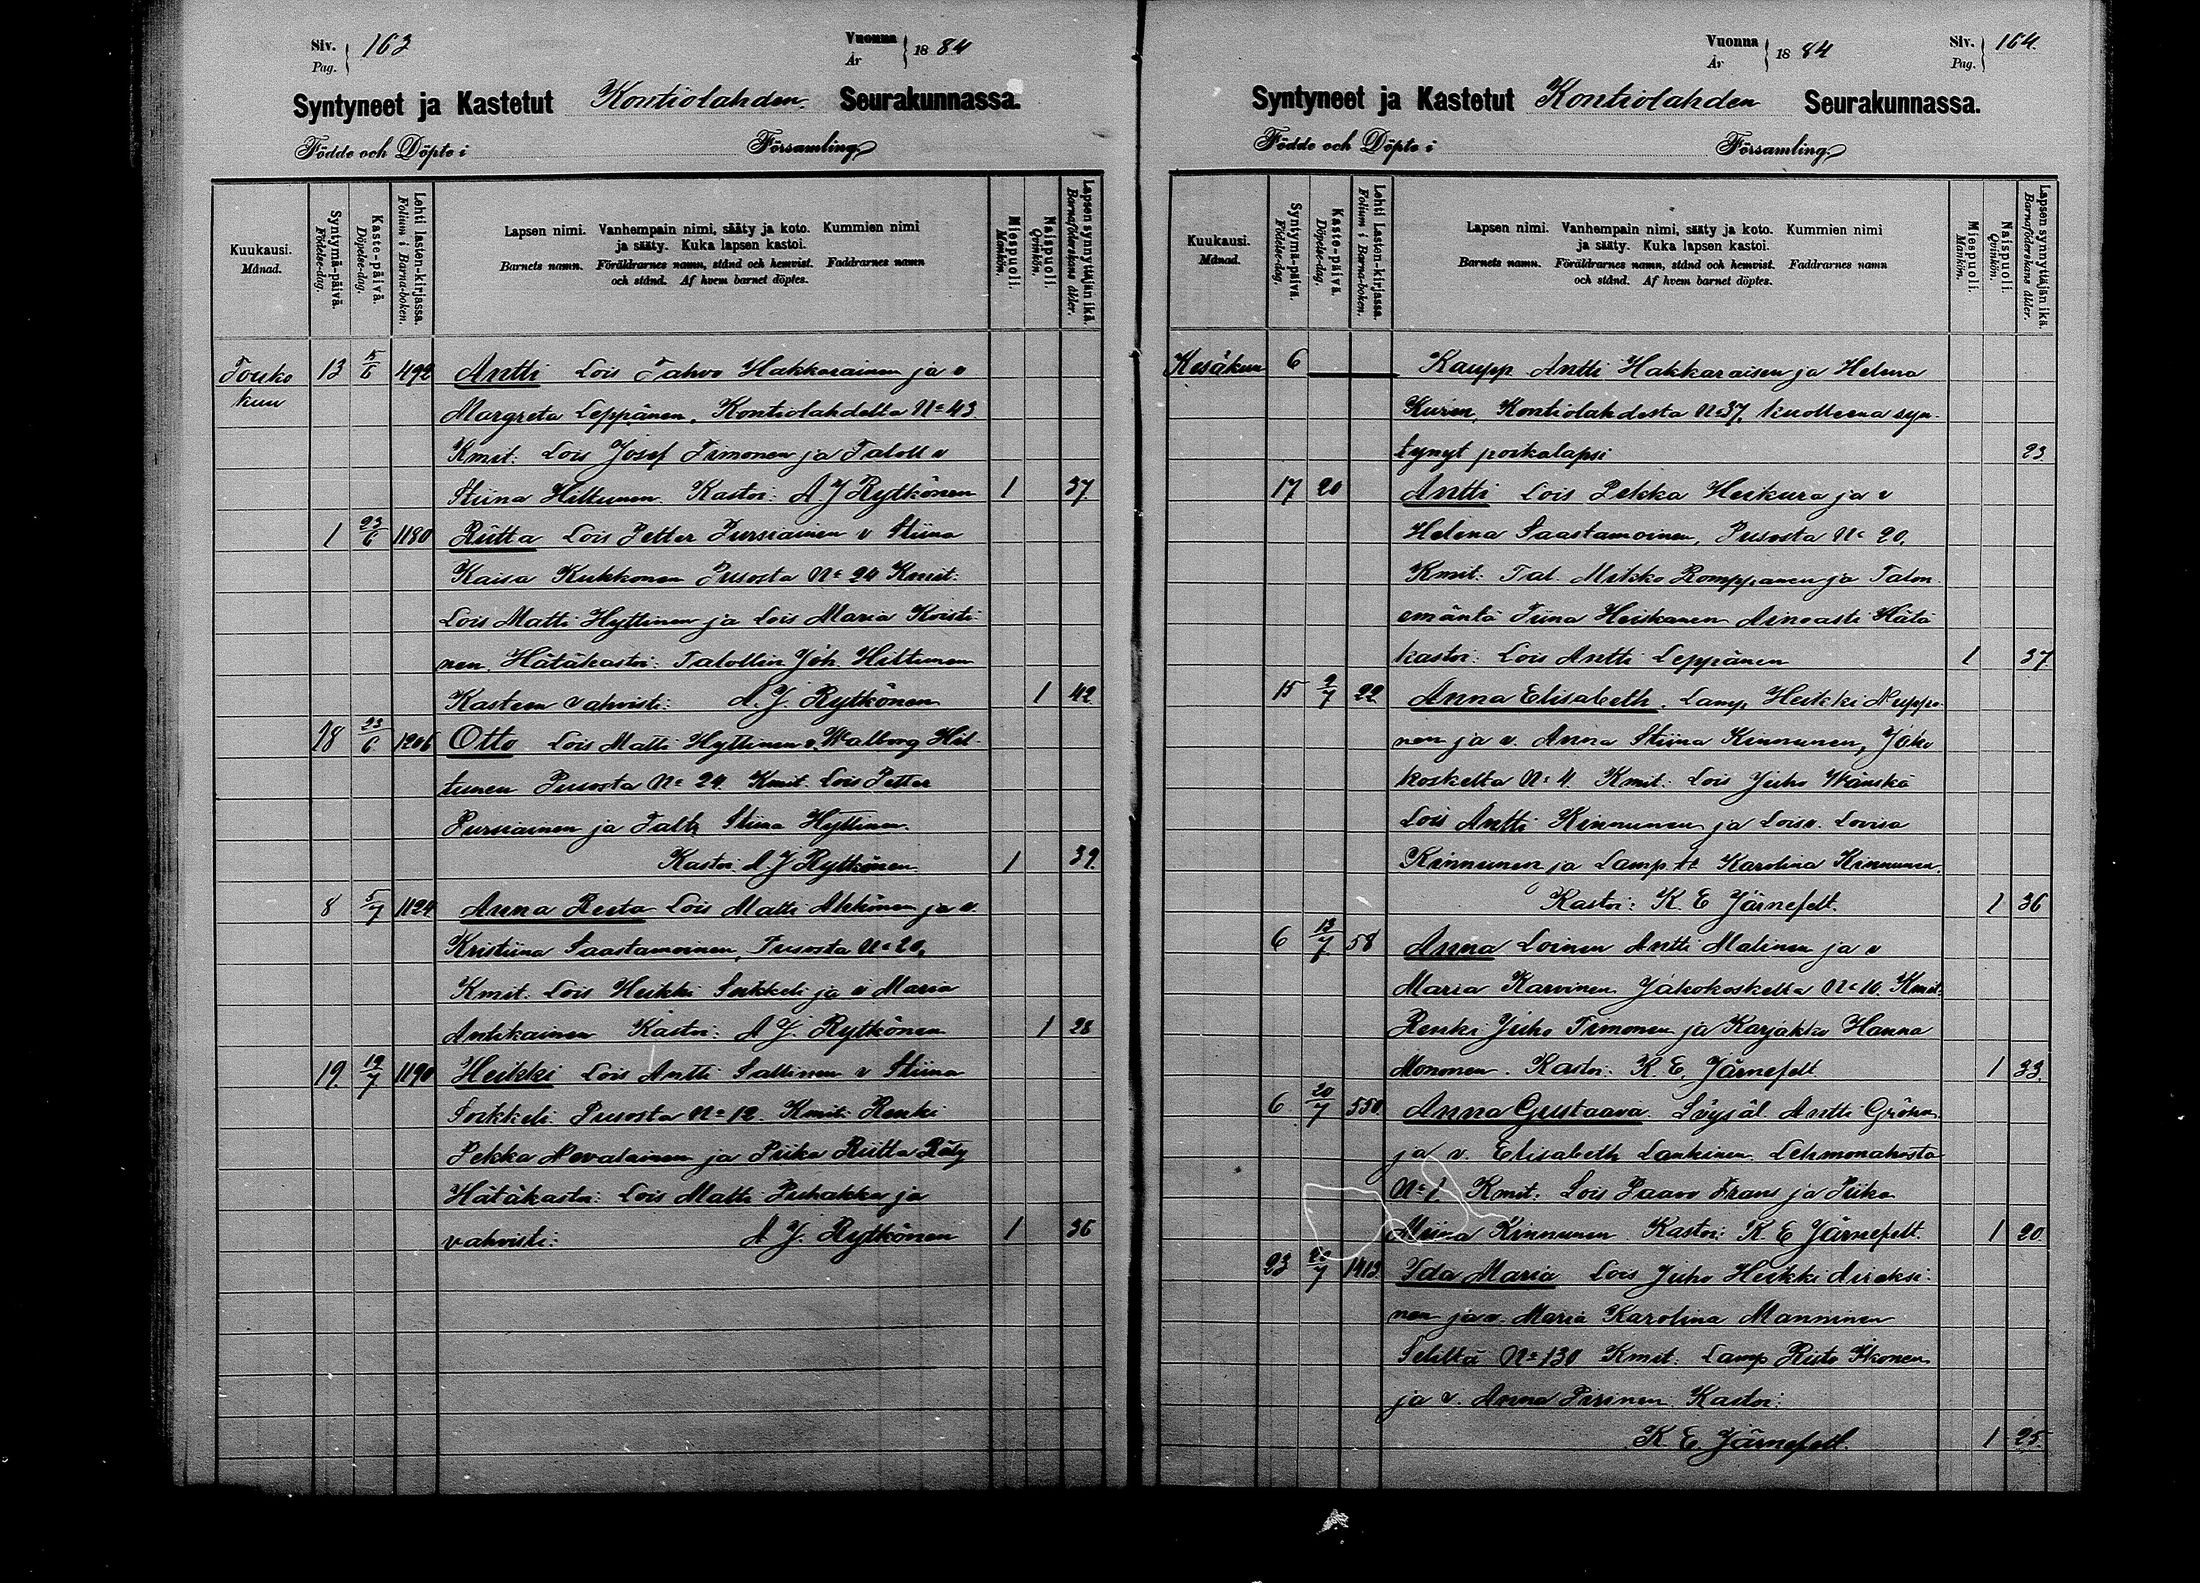 Siv. Pag. 163 Vuonna År 1884
Syntyneet ja Kastetut Kontiolahden Seurakunnassa.
Födde och Döpte i Församling.
Kuukausi. Månad.
Syntymä-päivä. Födelse-dag.
Kaste-päivä. Döpelse-dag.
Lehti lasten-kirjassa. Folium i Barna-boken.
Lapsen nimi. Vanhempain nimi, sääty ja koto. Kummien nimi
ja sääty. Kuka lapsen kastoi.
Barnets namn. Föräldrarnes namn, stånd och hemvist. Faddrarnes namn
och stånd. Af hvem barnet döptes.
Miespuoli. Mankön.
Naispuoli. Qvinkön.
Lapsen synnyttäjän ikä. Barnaföderskans ålder.
Touko 13 5/6 492 Antti Lois Tahvo Hakkarainen ja v
kuu Margreta Leppänen, Kontiolahdelta No 43
Kmit. Lois Josef Timonen ja Taloll v
Stiina Hiltunen Kastoi: A J Rytkönen 1 37
1 23/6 1180 Riitta Lois Petter Pursiainen v Stiina
Kaisa Kukkonen Pusosta No 24 Kmit:
Lois Matti Hyttinen ja Lois Maria Koisti
nen. Hätäkastoi: Talollin Joh. Hiltunen
Kasteen vahvisti: A. J. Rytkönen 1 42
18 23/6 1206 Otto Lois Matti Hyttinen v. Walborg Hil-
tunen Pusosta No 24. Kmit. Lois Petter
Pursiainen ja Stiina Hyttinen.
Kastoi: A. J Rytkönen 1 39.
8 5/7 1124 Anna Reeta Lois Matti Ahkonen ja v.
Kristiina Saastamoinen, Pusosta No 20.
Kmit. Lois Heikki Soikkeli ja v Maria
Antikainen Kastoi: A J. Rytkönen 1 28
19. 19/7 1190 Heikki Lois Antti Sallinen v Stiina
Soikkeli Pusosta No 12. Kmit. Renki
Pekka Nevalainen ja Piika Riitta Räty
Hätäkastoi: Lois Matti Puhakka ja
vahvisti: A J. Rytkönen 1 36
Vuonna År 1884 Siv. Pag. 164.
Syntyneet ja Kastetut Kontiolahden Seurakunnassa.
Födde och Döpte i Församling.
Kuukausi. Månad.
Syntymä-päivä. Födelse-dag.
Kaste-päivä. Döpelse-dag.
Lehti Lasten-kirjassa. Folium i Barna-boken.
Lapsen nimi. Vanhempain nimi, sääty ja koto. Kummien nimi
ja sääty. Kuka lapsen kastoi.
Barnets namn. Föräldrarnes namn, stånd och hemvist. Faddrarnes namn
och stånd. Af hvem barnet döptes.
Miespuoli. Mankön.
Naispuoli. Qvinkön.
Lapsen synnyttäjän ikä. Barnaföderskans ålder.
Kesäkuu 6 Kaupp Antti Hakkaraisen ja Helena
Kuren, Kontiolahdesta No 37, kuolleena syn-
tynyt poikalapsi 23
17 20 Antti Lois Pekka Heikura ja v
Helena Saastamoinen, Pusosta No 20.
Kmit: Tal. Mikko Romppanen ja Talon
emäntä Tiina Heiskanen Ainoasti Hätä
kastoi: Lois Antti Leppänen 1 37
15 2/7 22 Anna Elisabeth, Lamp Heikki Nuppo
nen ja v. Anna Stiina Kinnunen, Jako
koskelta No 4. Kmit: Lois Juho Wänskä
Lois Antti Kinnunen ja Lois v. Lovisa
Kinnunen ja Lamp. tt Karolina Kinnunen.
Kastoi: K. E Järnefelt. 1 36
6 13/7 58 Anna Loinen Antti Malinen ja v
Maria Karvinen Jakokoskelta No 10. Kmit:
Renki Juho Timonen ja Karjakko Hanna
Mononen. Kastoi: K. E. Järnefelt. 1 33.
6 20/7 550 Anna Gustaava. Löysäl. Antti Grösen
ja v. Elisabeth Lankinen. Lehmonahosta
No 1. Kmit. Lois Paavo Frans ja Piika
Miina Kinnunen Kastoi: K E Järnefelt. 1 20
23 20/7 1413 Ida Maria Lois Juho Heikki Airaksi-
nen ja v. Maria Karolina Manninen
Seliltä No 130 Kmit: Lamp Risto Ikonen
ja v. Anna Piirinen Kastoi:
K. E. Järnefelt. 1 25.